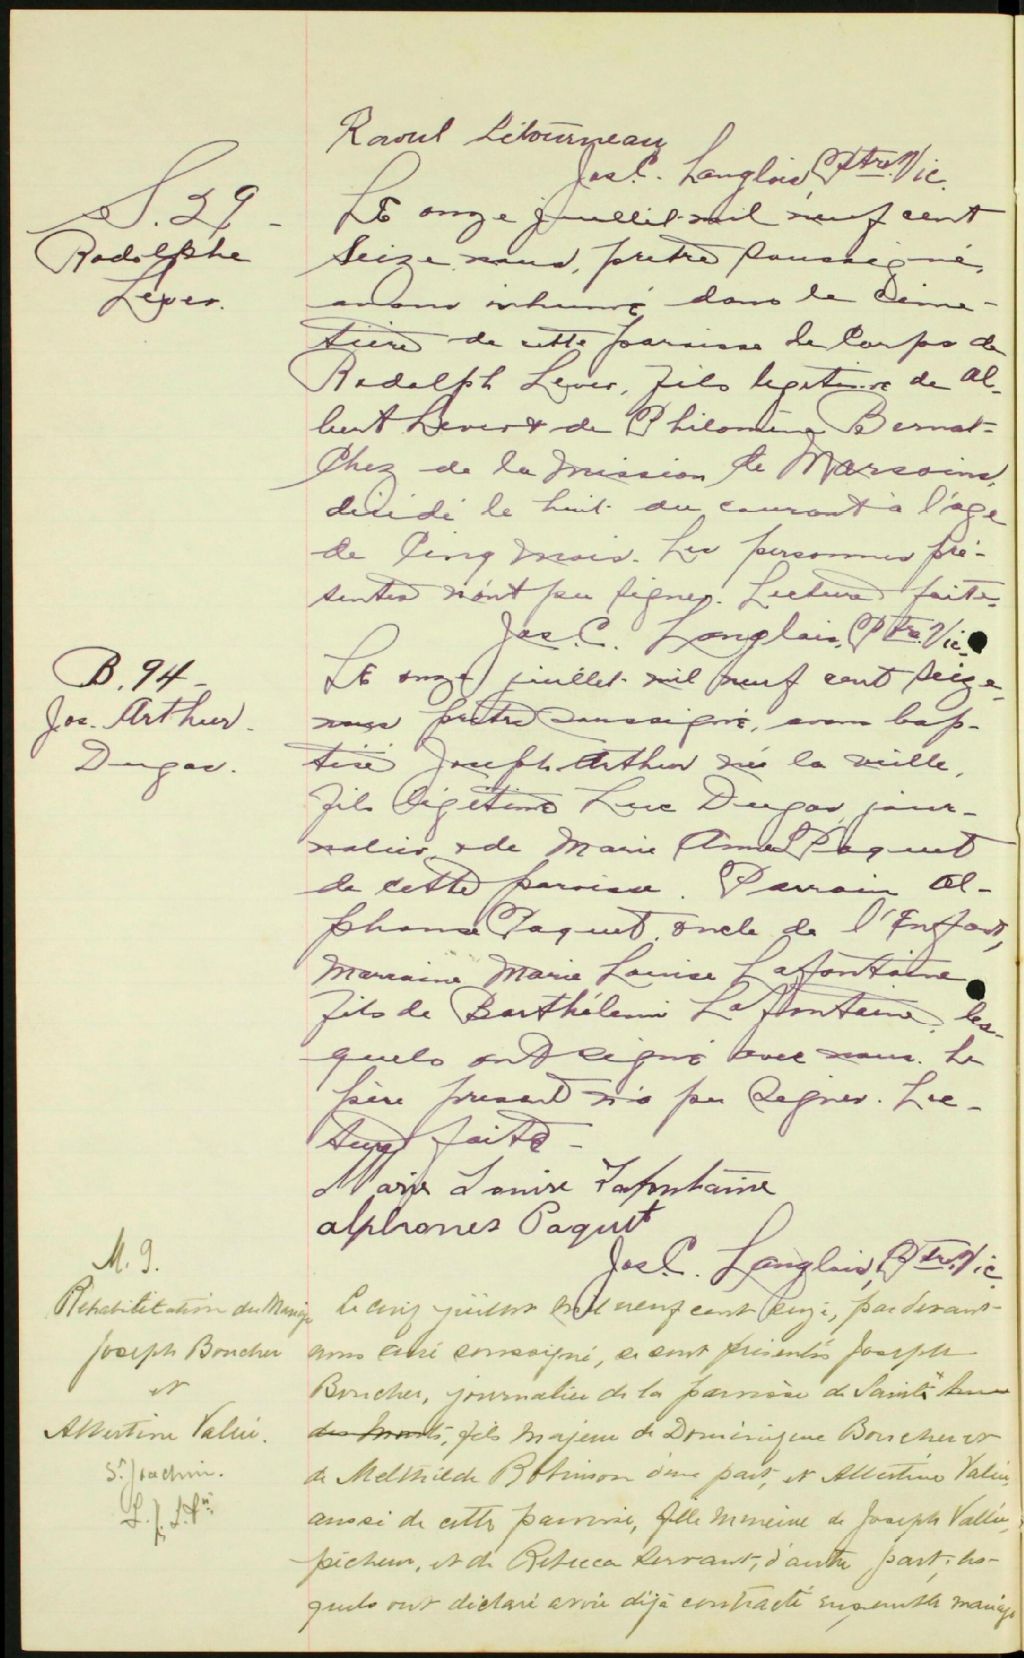 Raoul Létourneau
Jos. C. Langlois, Ptre. Vic.
S. 29
Rodolphe
Lever.
Le onze juillet mil neuf cent
Seize nous, prêtre soussigné,
avons inhumé dans le cime-
tière de cette paroisse le Corps de
Rodolph Lever, fils légitime de Al-
bert Lever & de Philomène Bernat-
Chez de la Mission de Marsoins,
décédé le huit du courant à l'âge
de Cinq mois. Les personnes pré-
sentes n'ont pu signer. Lecture faite.
Jos. C. Langlois, Ptre. Vic.
B. 94
Jos. Arthur
Dugas.
Le onze juillet mil neuf cent seize,
nous prêtre soussigné, avons bap-
tisé Joseph Arthur né la veille,
fils légitime Luc Dugas, jour-
nalier & de Marie Anne Paquet
de cette paroisse. Parrain Al-
phonse Paquet, oncle de l'Enfant,
Marraine Marie Louise Lafontaine
fils de Barthélemi Lafontaine, les-
quels ont signé avec nous. Le
père present n'a pu signer. Lec-
ture faite -
Marie Louise Lafontaine
alphonse Paquet
Jos. C. Langlois, Ptre. Vic
M. 9.
Réhabilitation du Mariage
Joseph Boucher
et
Albertine Valée.
St Joachim.
Le cinq juillet mil neuf cent seize, par devant
nous curé soussigné, se sont présentés Joseph
Boucher, journalier de la paroisse de Sainte Anne
des Monts, fils majeur de Dominique Boucher et
de Melthilde Robinson d'une part, et Albertine Valée,
aussi de cette paroisse, fille mineure de Joseph Vallée,
pêcheur, et de Rebecca Servant, d'autre part; les-
quels ont déclaré avoir déjà contracté ensemble mariage